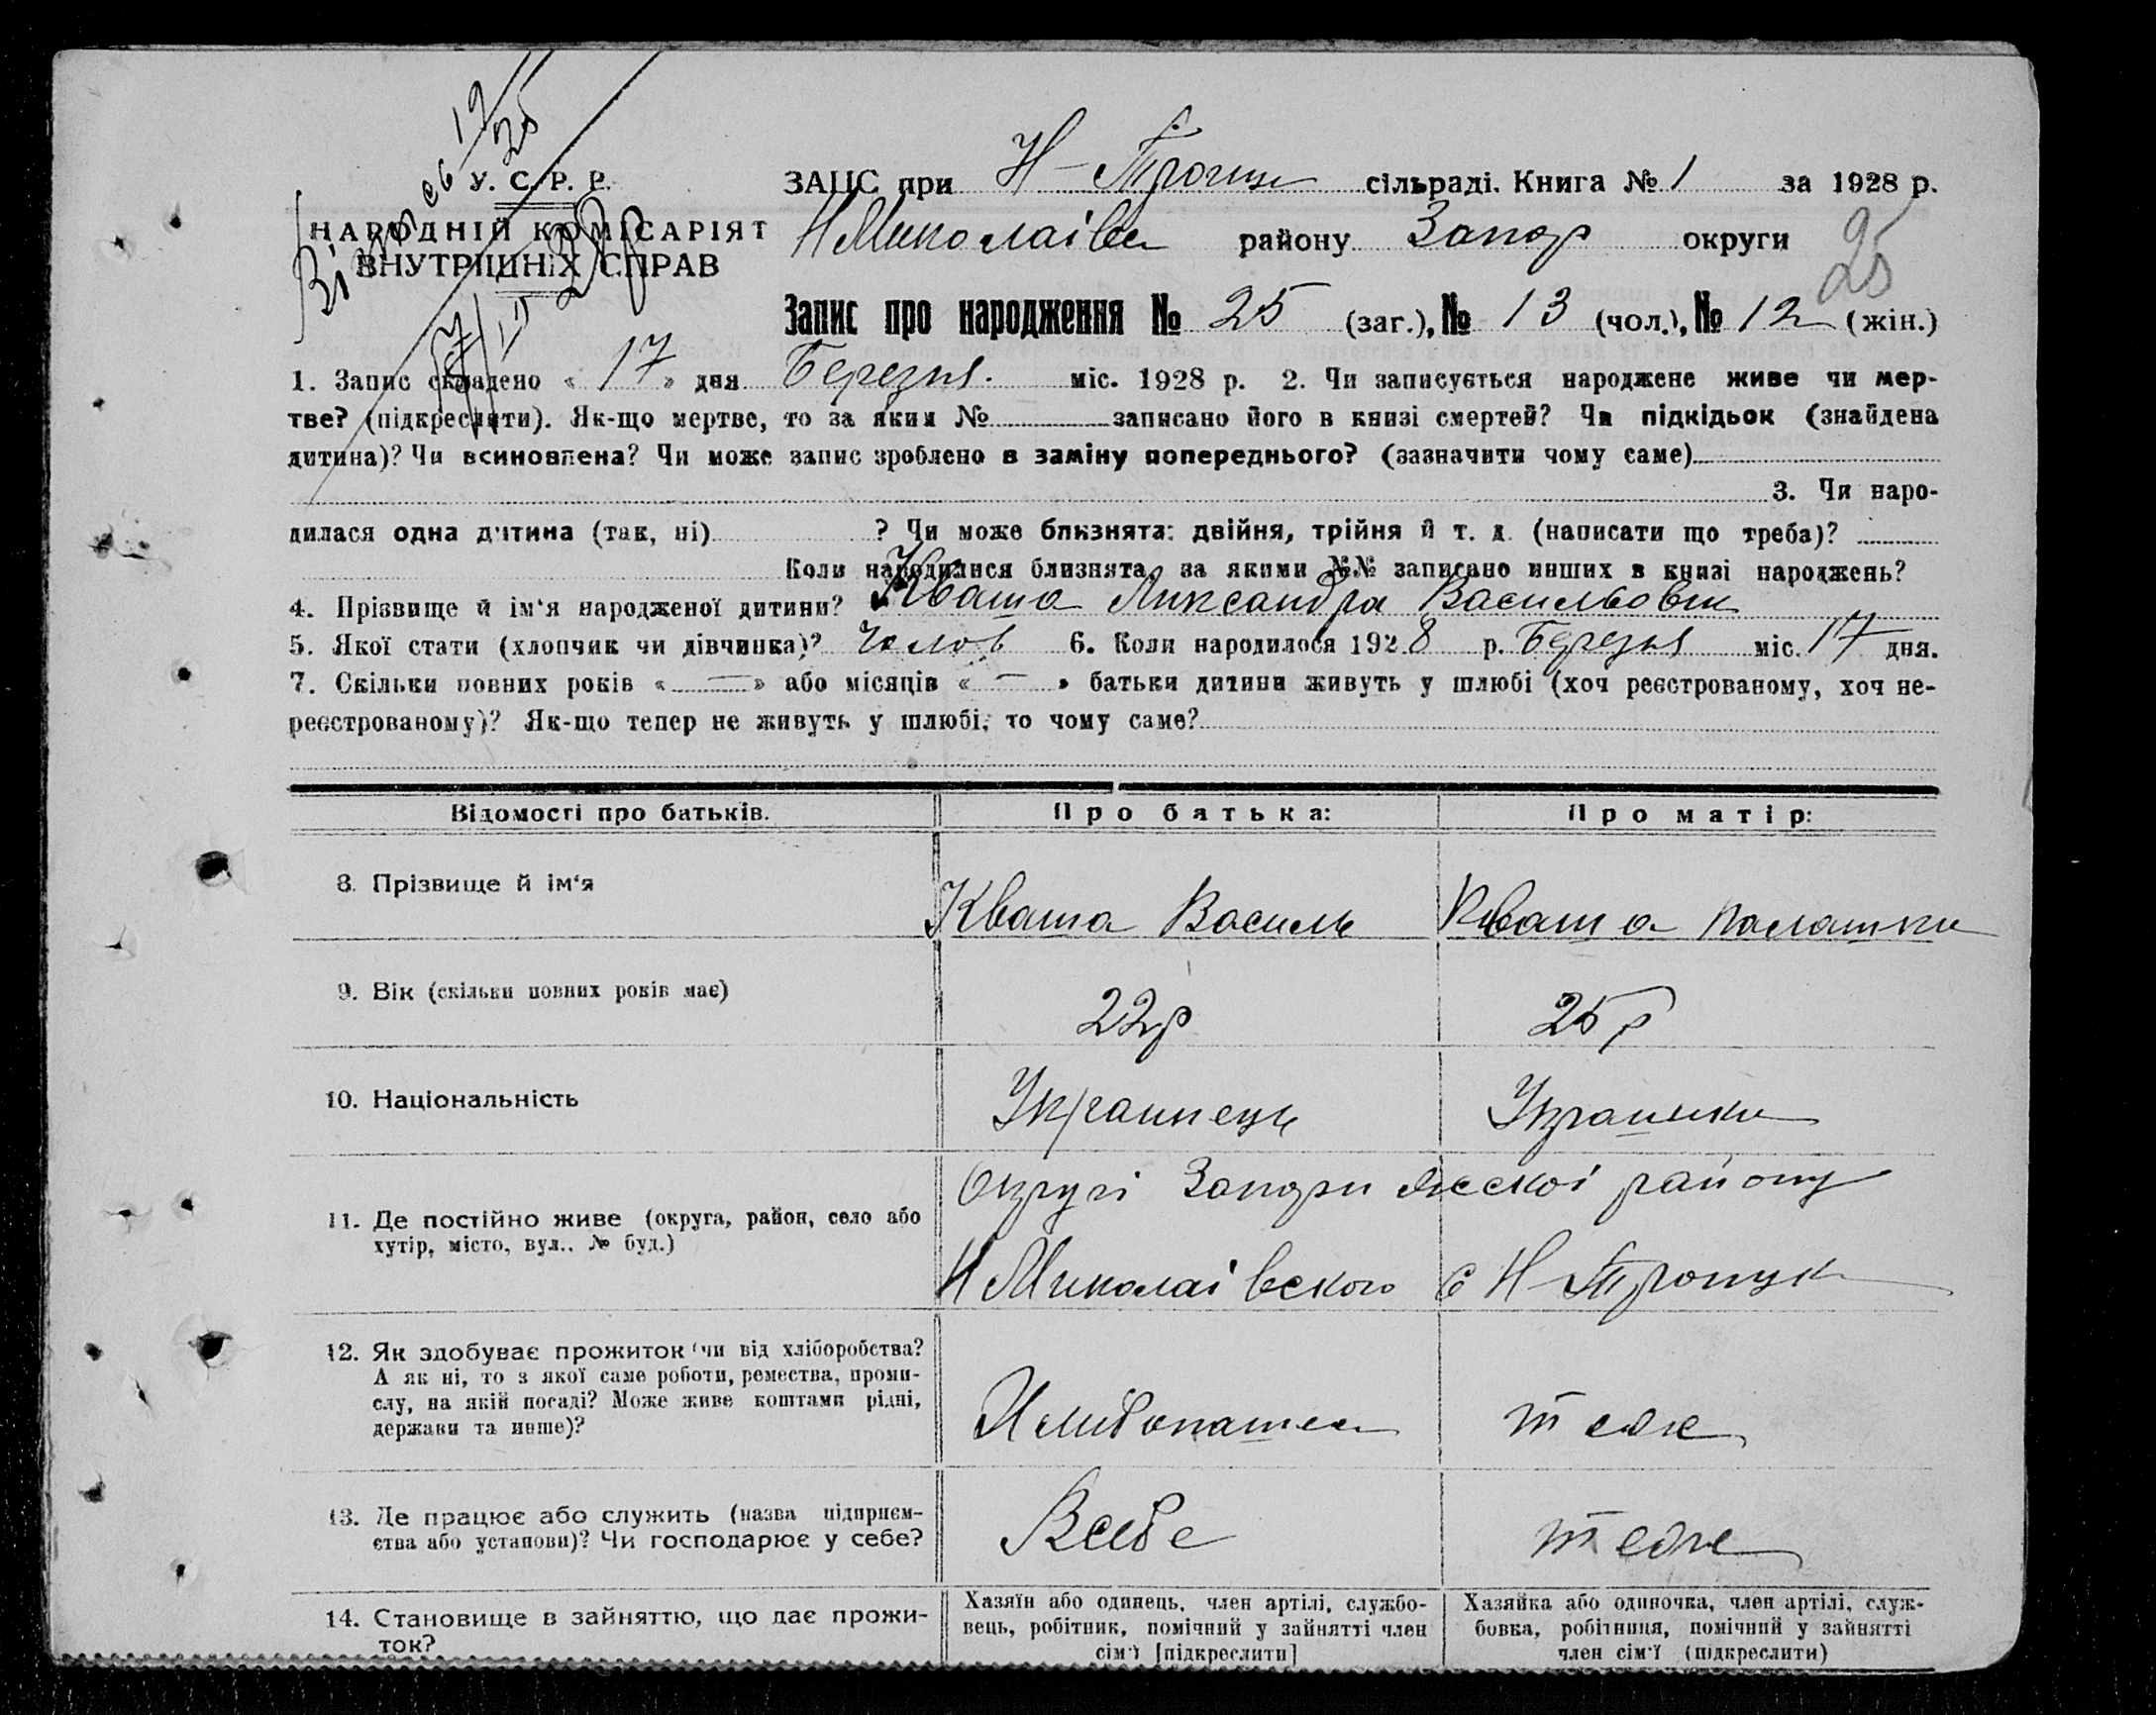 У. С. Р. Р.
НАРОДНІЙ КОМІСАРІЯТ
ВНУТРІШНІХ СПРАВ
ЗАПС при Н-Троицк сільраді. Книга № 1 за 1928 р.
НМиколаівськ району Запор округи
25
Запис про народження № 25 (заг.), № 13 (чол.), № 12 (жін.)
1. Запис складено « 17 » дня Березня. міс. 1928 р. 2. Чи записується народжене живе чи мер-
тве? (підкреслити). Як-що мертве, то за яким № записано його в книзі смертей? Чи підкідьок (знайдена
дитина)? Чи всиновлена? Чи може запис зроблено в заміну попереднього? (зазначити чому саме)
3. Чи наро-
дилася одна дитина (так, ні) ? Чи може близнята: двійня, трійня й т. д. (написати що треба)?
Коли народилися близнята, за якими №№ записано инших в книзі народжень?
4. Прізвище й ім'я народженої дитини? Кваша Александра Васильовек
5. Якої стати (хлопчик чи дівчинка)? Чолов 6. Коли народилося 1928 р. Березня міс. 17 дня.
7. Скільки повних років « — » або місяців « — » батьки дитини живуть у шлюбі (хоч реєстрованому, хоч не-
реєстрованому)? Як-що тепер не живуть у шлюбі, то чому саме?
Відомості про батьків. Про батька: Про матір:
8. Прізвище й ім'я Кваша Василь Кваша Палашка
9. Вік (скільки повних років має) 22р 25р
10. Національність Украинець Украинка
11. Де постійно живе (округа, район, село або
хутір, місто, вул.. № буд.)
Округі Запорижескоі району
Н Миколаівского с Н-Троицк
12. Як здобуває прожиток (чи від хліборобства?
А як ні, то з якої саме роботи, ремества, проми-
слу, на якій посаді? Може живе коштами рідні,
держави та инше)?
теж
13. Де працює або служить (назва підприєм-
ства або установи)? Чи господарює у себе?
Всебе теже
14. Становище в зайняттю, що дає прожи-
ток?
Хазяїн або одинець, член артілі, службо-
вець, робітник, помічний у зайнятті член
сім'ї [підкреслити]
Хазяйка або одиночка, член артілі, служ-
бовка, робітниця, помічний у зайнятті
член сім'ї (підкреслити)